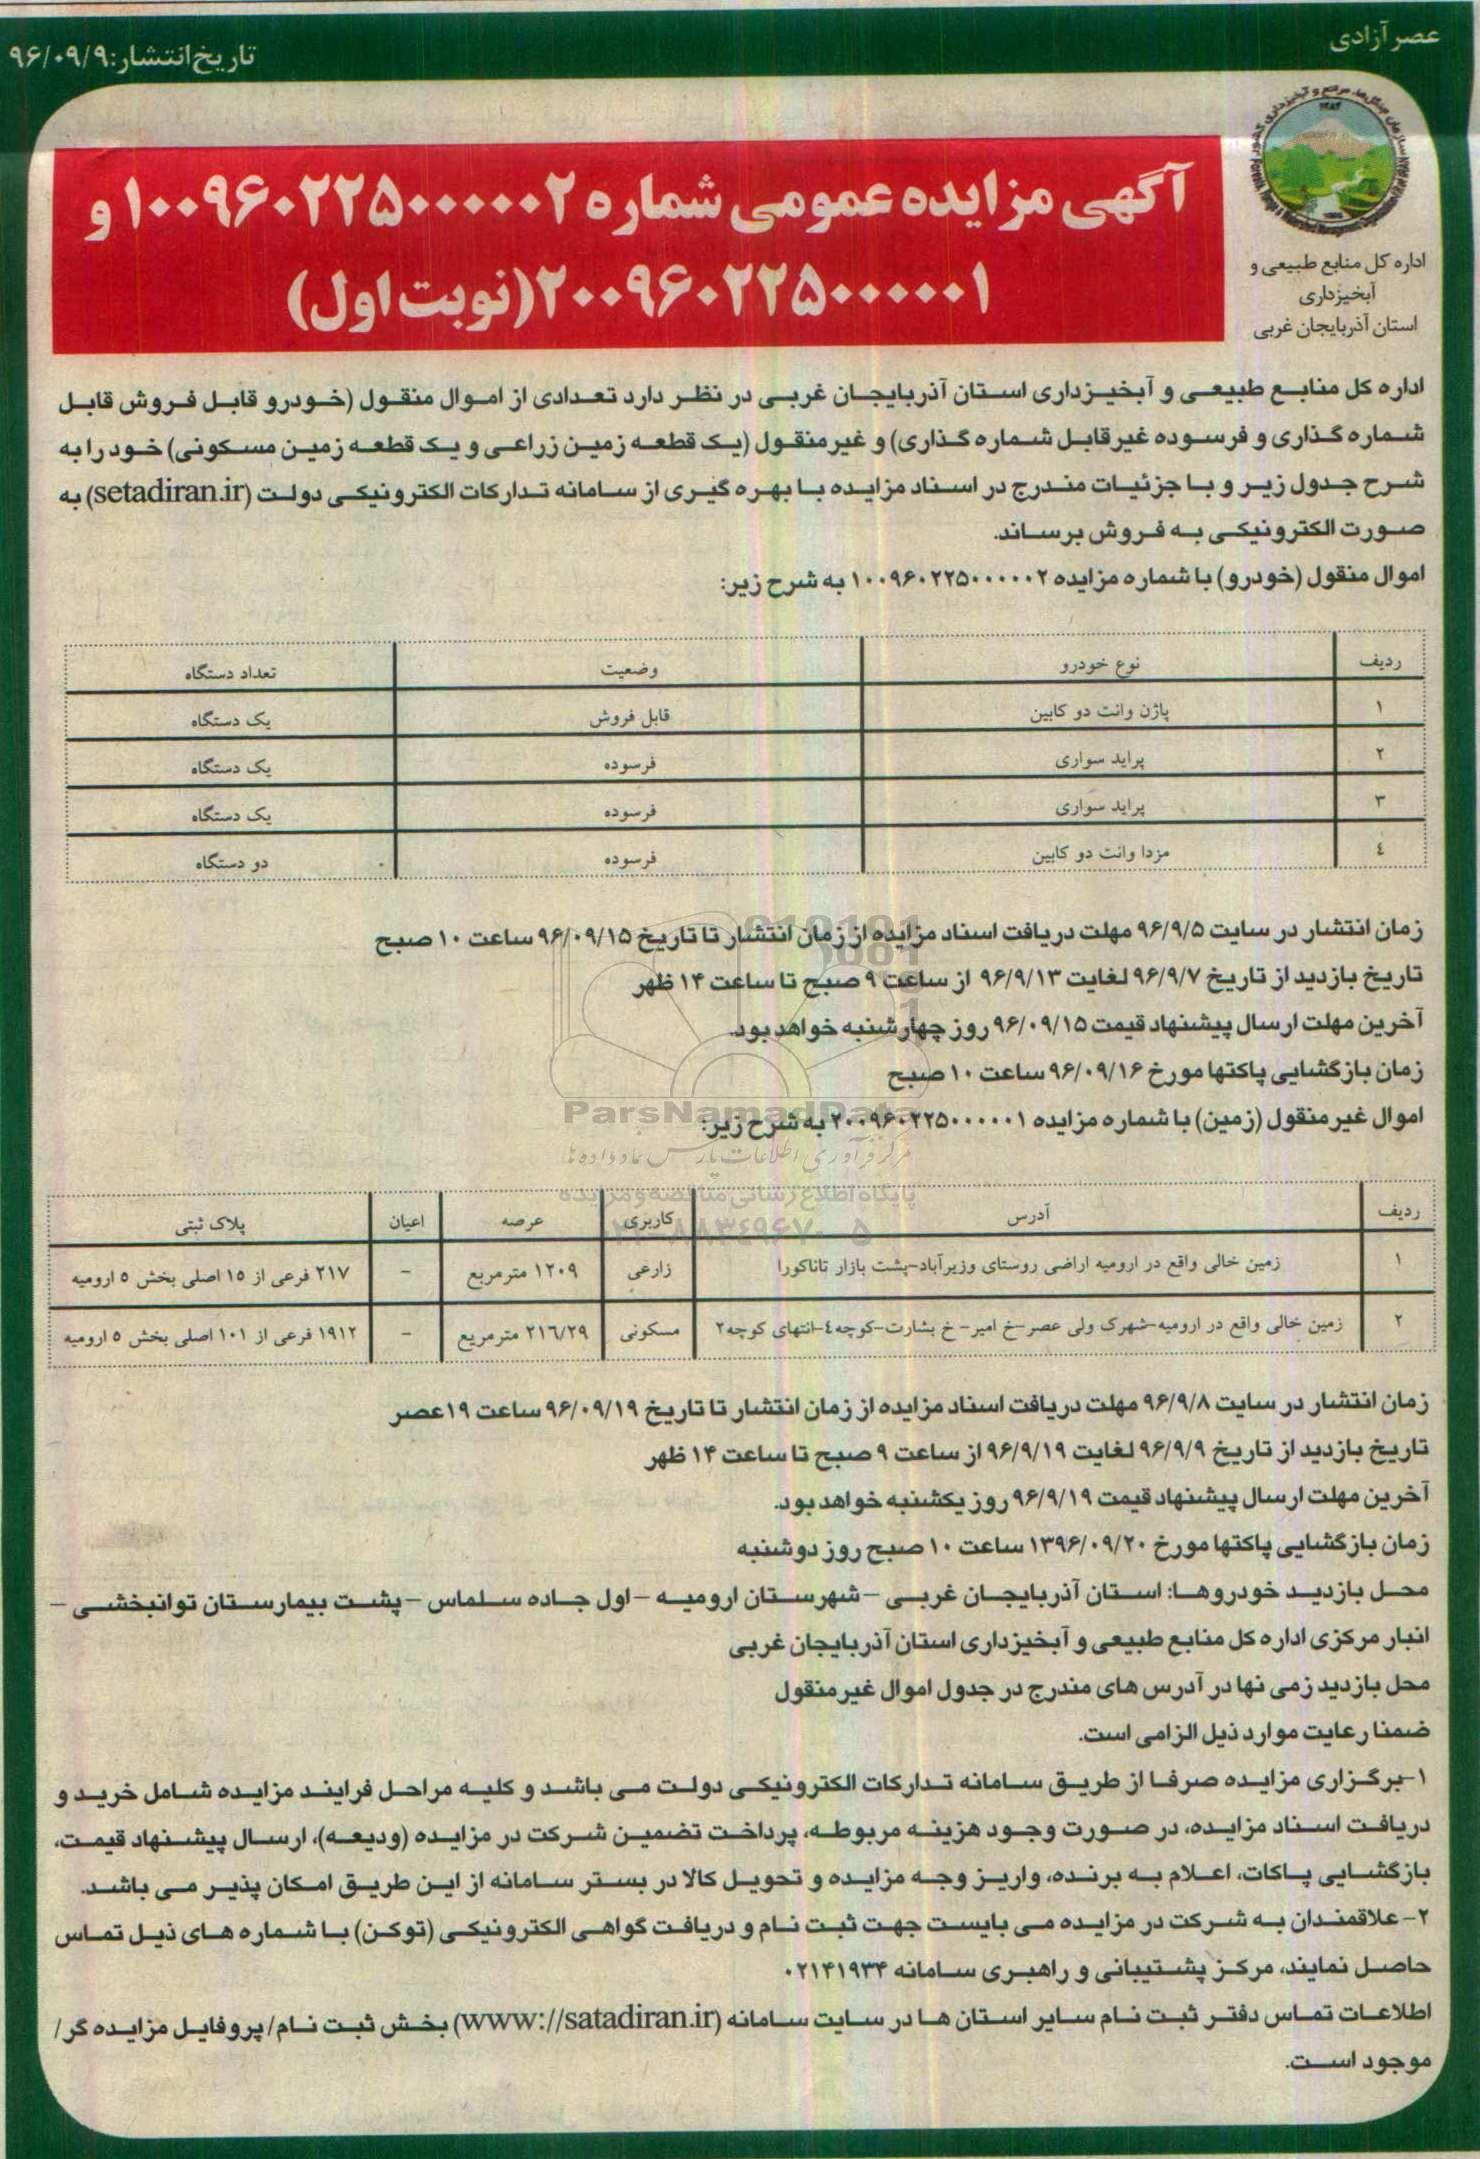 عصر آزادی
تاریخ انتشار: ۹۶/۰۹/۹
اداره کل منابع طبیعی و
آبخیزداری
استان آذربایجان غربی
آگهی مزایده عمومی شماره ۱۰۰۹۶۰۲۲۵۰۰۰۰۰۲ و
۲۰۰۹۶۰۲۲۵۰۰۰۰۰۱ (نوبت اول)
اداره کل منابع طبیعی و آبخیزداری استان آذربایجان غربی در نظر دارد تعدادی از اموال منقول (خودرو قابل فروش قابل
شماره گذاری و فرسوده غیرقابل شماره گذاری) و غیرمنقول (یک قطعه زمین زراعی و یک قطعه زمین مسکونی) خود را به
شرح جدول زیر و با جزئیات مندرج در اسناد مزایده با بهره گیری از سامانه تدارکات الکترونیکی دولت (setadiran.ir) به
صورت الکترونیکی به فروش برساند.
اموال منقول (خودرو) با شماره مزایده ۱۰۰۹۶۰۲۲۵۰۰۰۰۰۲ به شرح زیر:
ردیف نوع خودرو وضعیت تعداد دستگاه
۱ پاژن وانت دو کابین قابل فروش یک دستگاه
۲ پراید سواری فرسوده یک دستگاه
۳ پراید سواری فرسوده یک دستگاه
٤ مزدا وانت دو کابین فرسوده دو دستگاه
زمان انتشار در سایت ۹۶/۹/۵ مهلت دریافت اسناد مزایده از زمان انتشار تا تاریخ ۹۶/۰۹/۱۵ ساعت ۱۰ صبح
تاریخ بازدید از تاریخ ۹۶/۹/۷ لغایت ۹۶/۹/۱۳ از ساعت ۹ صبح تا ساعت ۱۴ ظهر
آخرین مهلت ارسال پیشنهاد قیمت ۹۶/۰۹/۱۵ روز چهارشنبه خواهد بود.
زمان بازگشایی پاکتها مورخ ۹۶/۰۹/۱۶ ساعت ۱۰ صبح
اموال غیرمنقول (زمین) با شماره مزایده ۲۰۰۹۶۰۲۲۵۰۰۰۰۰۱ به شرح زیر:
ParsNamadData
مرکز فرآوری اطلاعات پارس نماد داده ها
پایگاه اطلاع رسانی مناقصه و مزایده
ردیف آدرس کاربری عرصه اعیان پلاک ثبتی
۱ زمین خالی واقع در ارومیه اراضی روستای وزیرآباد-پشت بازار تاناکورا زارعی ۱۲۰۹ مترمربع - ۲۱۷ فرعی از ۱۵ اصلی بخش ۵ ارومیه
۲ زمین خالی واقع در ارومیه-شهرک ولی عصر-خ امیر- خ بشارت-کوچه٤-انتهای کوچه۲ مسکونی ۲۱٦/۲۹ مترمربع - ۱۹۱۲ فرعی از ۱۰۱ اصلی بخش ۵ ارومیه
زمان انتشار در سایت ۹۶/۹/۸ مهلت دریافت اسناد مزایده از زمان انتشار تا تاریخ ۹۶/۰۹/۱۹ ساعت ۱۹عصر
تاریخ بازدید از تاریخ ۹۶/۹/۹ لغایت ۹۶/۹/۱۹ از ساعت ۹ صبح تا ساعت ۱۴ ظهر
آخرین مهلت ارسال پیشنهاد قیمت ۹۶/۹/۱۹ روز یکشنبه خواهد بود.
زمان بازگشایی پاکتها مورخ ۱۳۹۶/۰۹/۲۰ ساعت ۱۰ صبح روز دوشنبه
محل بازدید خودروها: استان آذربایجان غربی - شهرستان ارومیه - اول جاده سلماس - پشت بیمارستان توانبخشی -
انبار مرکزی اداره کل منابع طبیعی و آبخیزداری استان آذربایجان غربی
محل بازدید زمی نها در آدرس های مندرج در جدول اموال غیرمنقول
ضمنا رعایت موارد ذیل الزامی است.
۱-برگزاری مزایده صرفا از طریق سامانه تدارکات الکترونیکی دولت می باشد و کلیه مراحل فرایند مزایده شامل خرید و
دریافت اسناد مزایده، در صورت وجود هزینه مربوطه، پرداخت تضمین شرکت در مزایده (ودیعه)، ارسال پیشنهاد قیمت،
بازگشایی پاکات، اعلام به برنده، واریز وجه مزایده و تحویل کالا در بستر سامانه از این طریق امکان پذیر می باشد.
۲- علاقمندان به شرکت در مزایده می بایست جهت ثبت نام و دریافت گواهی الکترونیکی (توکن) با شماره های ذیل تماس
حاصل نمایند، مرکز پشتیبانی و راهبری سامانه ۰۲۱۴۱۹۳۴
اطلاعات تماس دفتر ثبت نام سایر استان ها در سایت سامانه (www://satadiran.ir) بخش ثبت نام/ پروفایل مزایده گر/
موجود است.